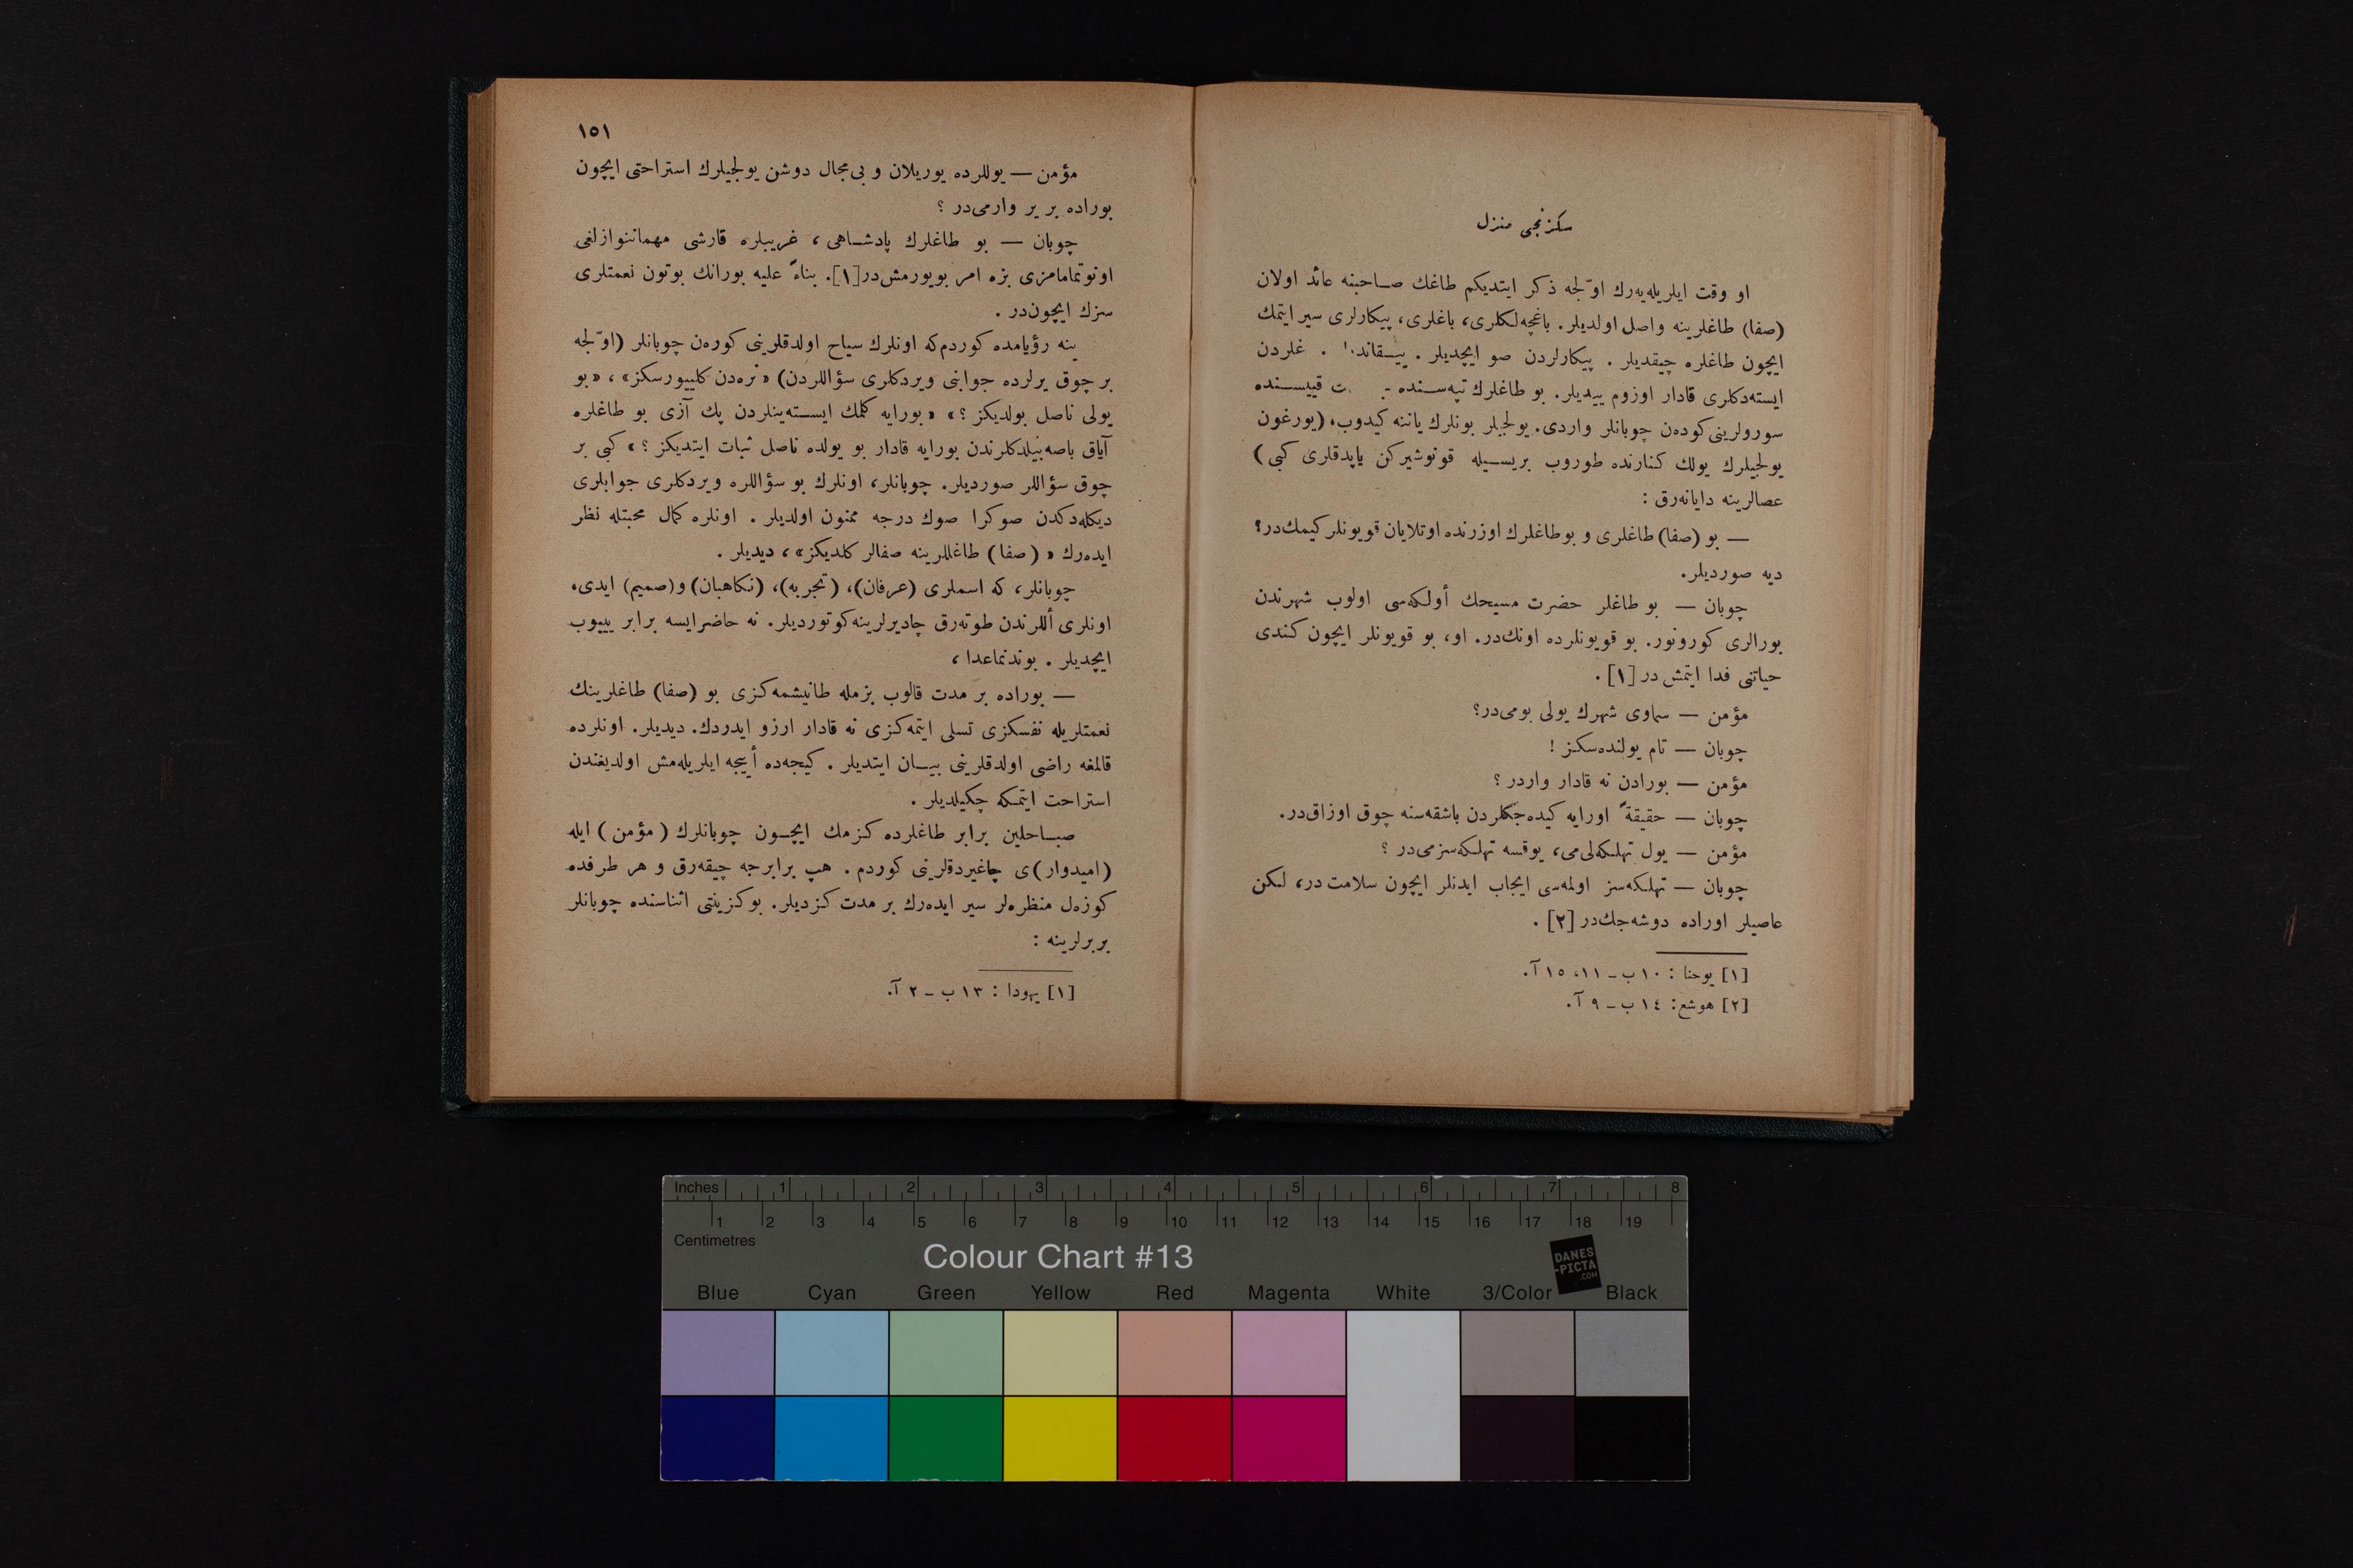 سكزنجی منزل
او وقت ایلریله‌یه‌رك اوّلجه ذكر ایتدیكم طاغك صاحبنه عائد اولان
(صفا) طاغلرینه واصل اولدیلر. باغچه‌لكلری، باغلری، پیكارلری سیر ایتمك
ایچون طاغلره چیقدیلر . پیكارلردن صو ایچدیلر . ییقاند . غلردن
ایسته‌دكلری قادار اوزوم ییدیلر. بو طاغلرك تپه‌سنده ت قییسنده
سورولرینی كوده‌ن چوبانلر واردی. یولجیلر بونلرك یاننه كیدوب، (یورغون
یولجیلرك یولك كنارنده طوروب بریسیله قونوشیركن یاپدقلری كبی)
عصالرینه دایانه‌رق :
— بو (صفا) طاغلری و بو طاغلرك اوزرنده اوتلایان قویونلر كیمك‌در؟
دیه صوردیلر.
چوبان — بو طاغلر حضرت مسیحك أولكه‌سی اولوب شهرندن
بورالری كورونور. بو قویونلرده اونك‌در. او، بو قویونلر ایچون كندی
حیاتنی فدا ایتمش در [١] .
مؤمن — سماوی شهرك یولی بومی‌در؟
چوبان — تام یولنده‌سكز !
مؤمن — بورادن نه قادار واردر ؟
چوبان — حقیقةً اورایه كیده‌جكلردن باشقه‌سنه چوق اوزاق‌در.
مؤمن — یول تهلكه‌لی‌می، یوقسه تهلكه‌سزمی‌در ؟
چوبان — تهلكه‌سز اولمه‌سی ایجاب ایدنلر ایچون سلامت در، لكن
عاصیلر اوراده دوشه‌جك‌در [٢] .
[١] یوحنا : ١٠ ب ـ ١١، ١٥ آ.
[٢] هوشع: ١٤ ب ـ ٩ آ.
١٥١
مؤمن — یوللرده یوریلان و بی‌مجال دوشن یولجیلرك استراحتی ایچون
بوراده بر یر وارمی‌در ؟
چوبان — بو طاغلرك پادشاهی، غریبلره قارشی مهماننوازلغی
اونوتمامامزی بزه امر بویورمش‌در[١]. بناءً علیه بورانك بوتون نعمتلری
سزك ایچون‌در .
ینه رؤیامده كوردم‌كه اونلرك سیاح اولدقلرینی كوره‌ن چوبانلر (اوّلجه
بر چوق یرلرده جوابنی ویردكلری سؤاللردن) «نره‌دن كلییورسكز» ، «بو
یولی ناصل بولدیكز ؟» «بورایه كلمك ایسته‌ینلردن پك آزی بو طاغلره
آیاق باصه‌بیلدكلرندن بورایه قادار بو یولده ناصل ثبات ایتدیكز ؟» كبی بر
چوق سؤاللر صوردیلر. چوبانلر، اونلرك بو سؤاللره ویردكلری جوابلری
دیكله‌دكدن صوكرا صوك درجه ممنون اولدیلر . اونلره كمال محبتله نظر
ایده‌رك « (صفا) طاغللرینه صفالر كلدیكز» ، دیدیلر .
چوبانلر، كه اسملری (عرفان)، (تجربه)، (نكاهبان) و(صمیم) ایدی،
اونلری أللرندن طوته‌رق چادیرلرینه كوتوردیلر. نه حاضرایسه برابر ییوب
ایچدیلر . بوندنماعدا ،
— بوراده بر مدت قالوب بزمله طانیشمه‌كزی بو (صفا) طاغلرینك
نعمتلریله نفسكزی تسلی ایتمه‌كزی نه قادار ارزو ایدردك. دیدیلر. اونلرده
قالمغه راضی اولدقلرینی بیان ایتدیلر . كیجه‌ده أییجه ایلریله‌مش اولدیغندن
استراحت ایتمكه چكیلدیلر .
صباحلین برابر طاغلرده كزمك ایچون چوبانلرك (مؤمن) ایله
(امیدوار)ی چاغیردقلرینی كوردم . هپ برابرجه چیقه‌رق و هر طرفده
كوزه‌ل منظره‌لر سیر ایده‌رك بر مدت كزدیلر. بوكزینتی اثناسنده چوبانلر
بربرلرینه :
[١] یهودا : ١٣ ب ـ ٢ آ.
Inches 1 2 3 4 5 6 7 8
1 2 3 4 5 6 7 8 9 10 11 12 13 14 15 16 17 18 19
Centimetres
Colour Chart #13
DANES
-PICTA
.COM
Blue Cyan Green Yellow Red Magenta White 3/Color Black